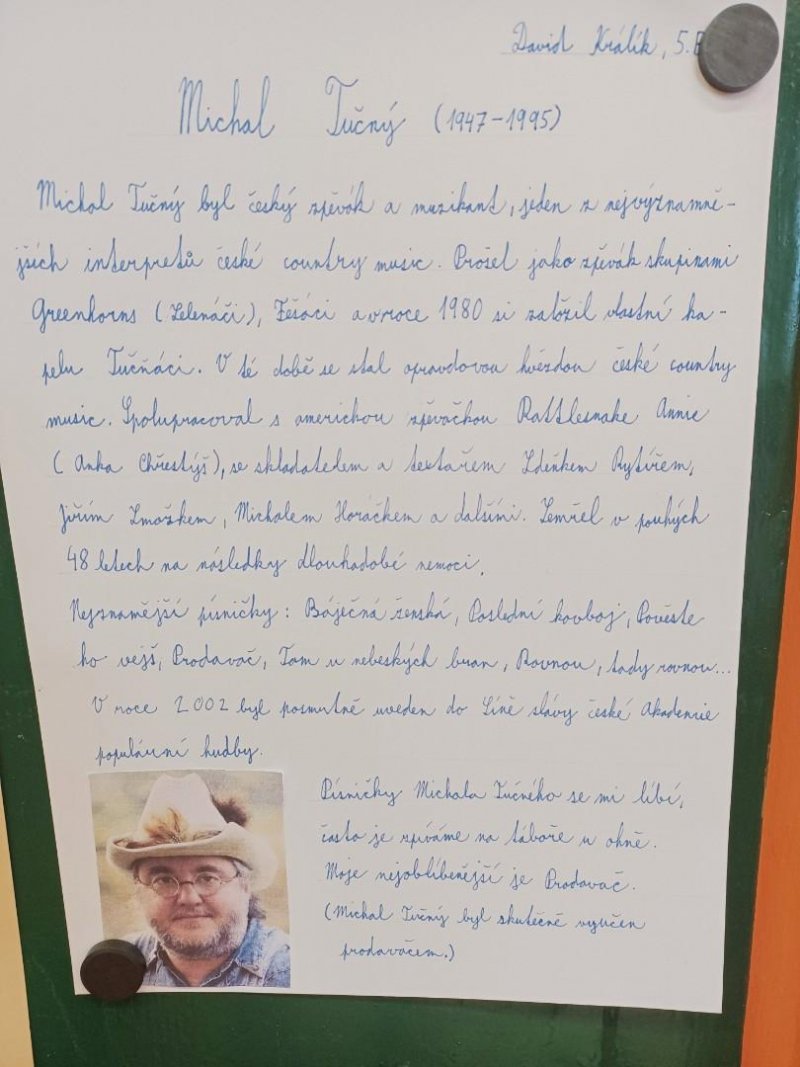 David Králík, 5.
Michal Tučný (1947-1995)
Michal Tučný byl český zpěvák a muzikant, jeden z nejvýznamně-
jších interpretů české country music. Prošel jako zpěvák skupinami
Greenhorns (Zelenáči), Fešáci a v roce 1980 si založil vlastní ka-
pelu Tučňáci. V té době se stal opravdovou hvězdou české country
music. Spolupracoval s americkou zpěvačkou Rattlesnake Annie
(Anka Chřestýš), se skladatelem a textařem Zdeňkem Rytířem,
Jiřím Zmožkem, Michalem Horáčkem a dalšími. Zemřel v pouhých
48 letech na následky dlouhodobé nemoci.
Nejznámější písničky: Báječná ženská, Poslední kovboj, Pověste
ho vejš, Prodavač, Tam u nebeských bran, Rovnou, tady rovnou...
V roce 2002 byl posmrtně uveden do Síně slávy české Akademie
populární hudby.
Písničky Michala Tučného se mi líbí,
často je zpíváme na táboře u ohně.
Moje nejoblíbenější je Prodavač.
(Michal Tučný byl skutečně vyučen
prodavačem.)